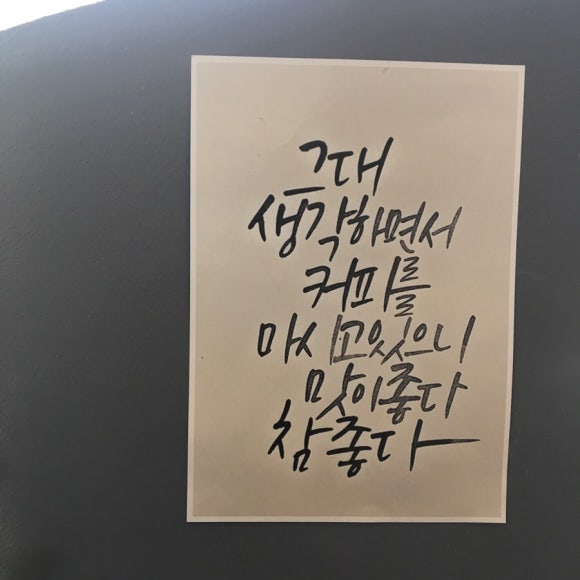 그대
생각하면서
커피를
마시고있으니
맛이좋다
참좋다